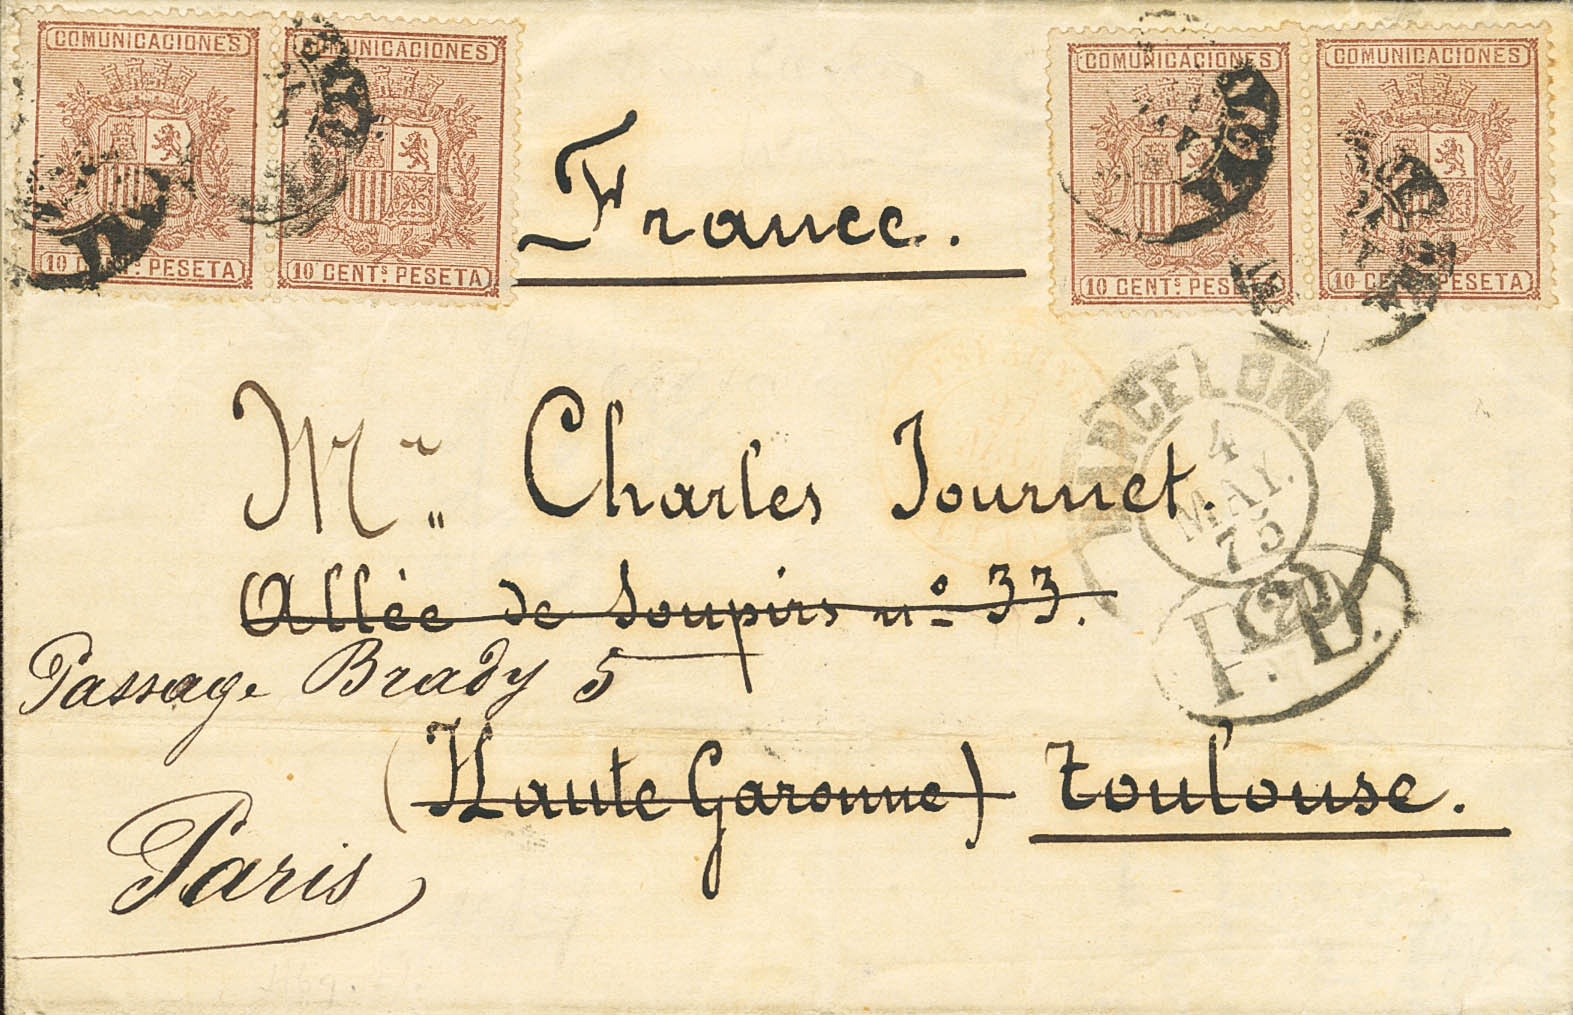 COMUNICACIONES COMUNICACIONES COMUNICACIONES COMUNICACIONES
10 CENTs. PESETA 10 CENTs. PESETA 10 CENTs. PESETA 10 CENTs. PESETA
France.
Mr. Charles Journet.
BARCELONA
4
MAY.
75
(2)
P.D.
Allée de Soupirs no 33.
Passage Brady 5
(Haute Garonne) Toulouse.
Paris